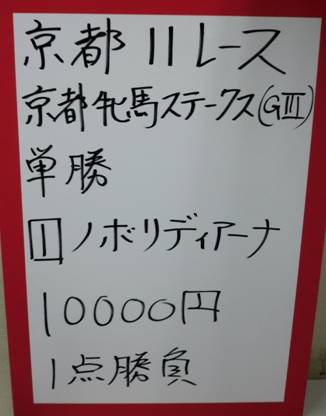 京都11レース
京都牝馬ステークス(GⅢ)
単勝
1 ノボリディアーナ
10000円
1点勝負